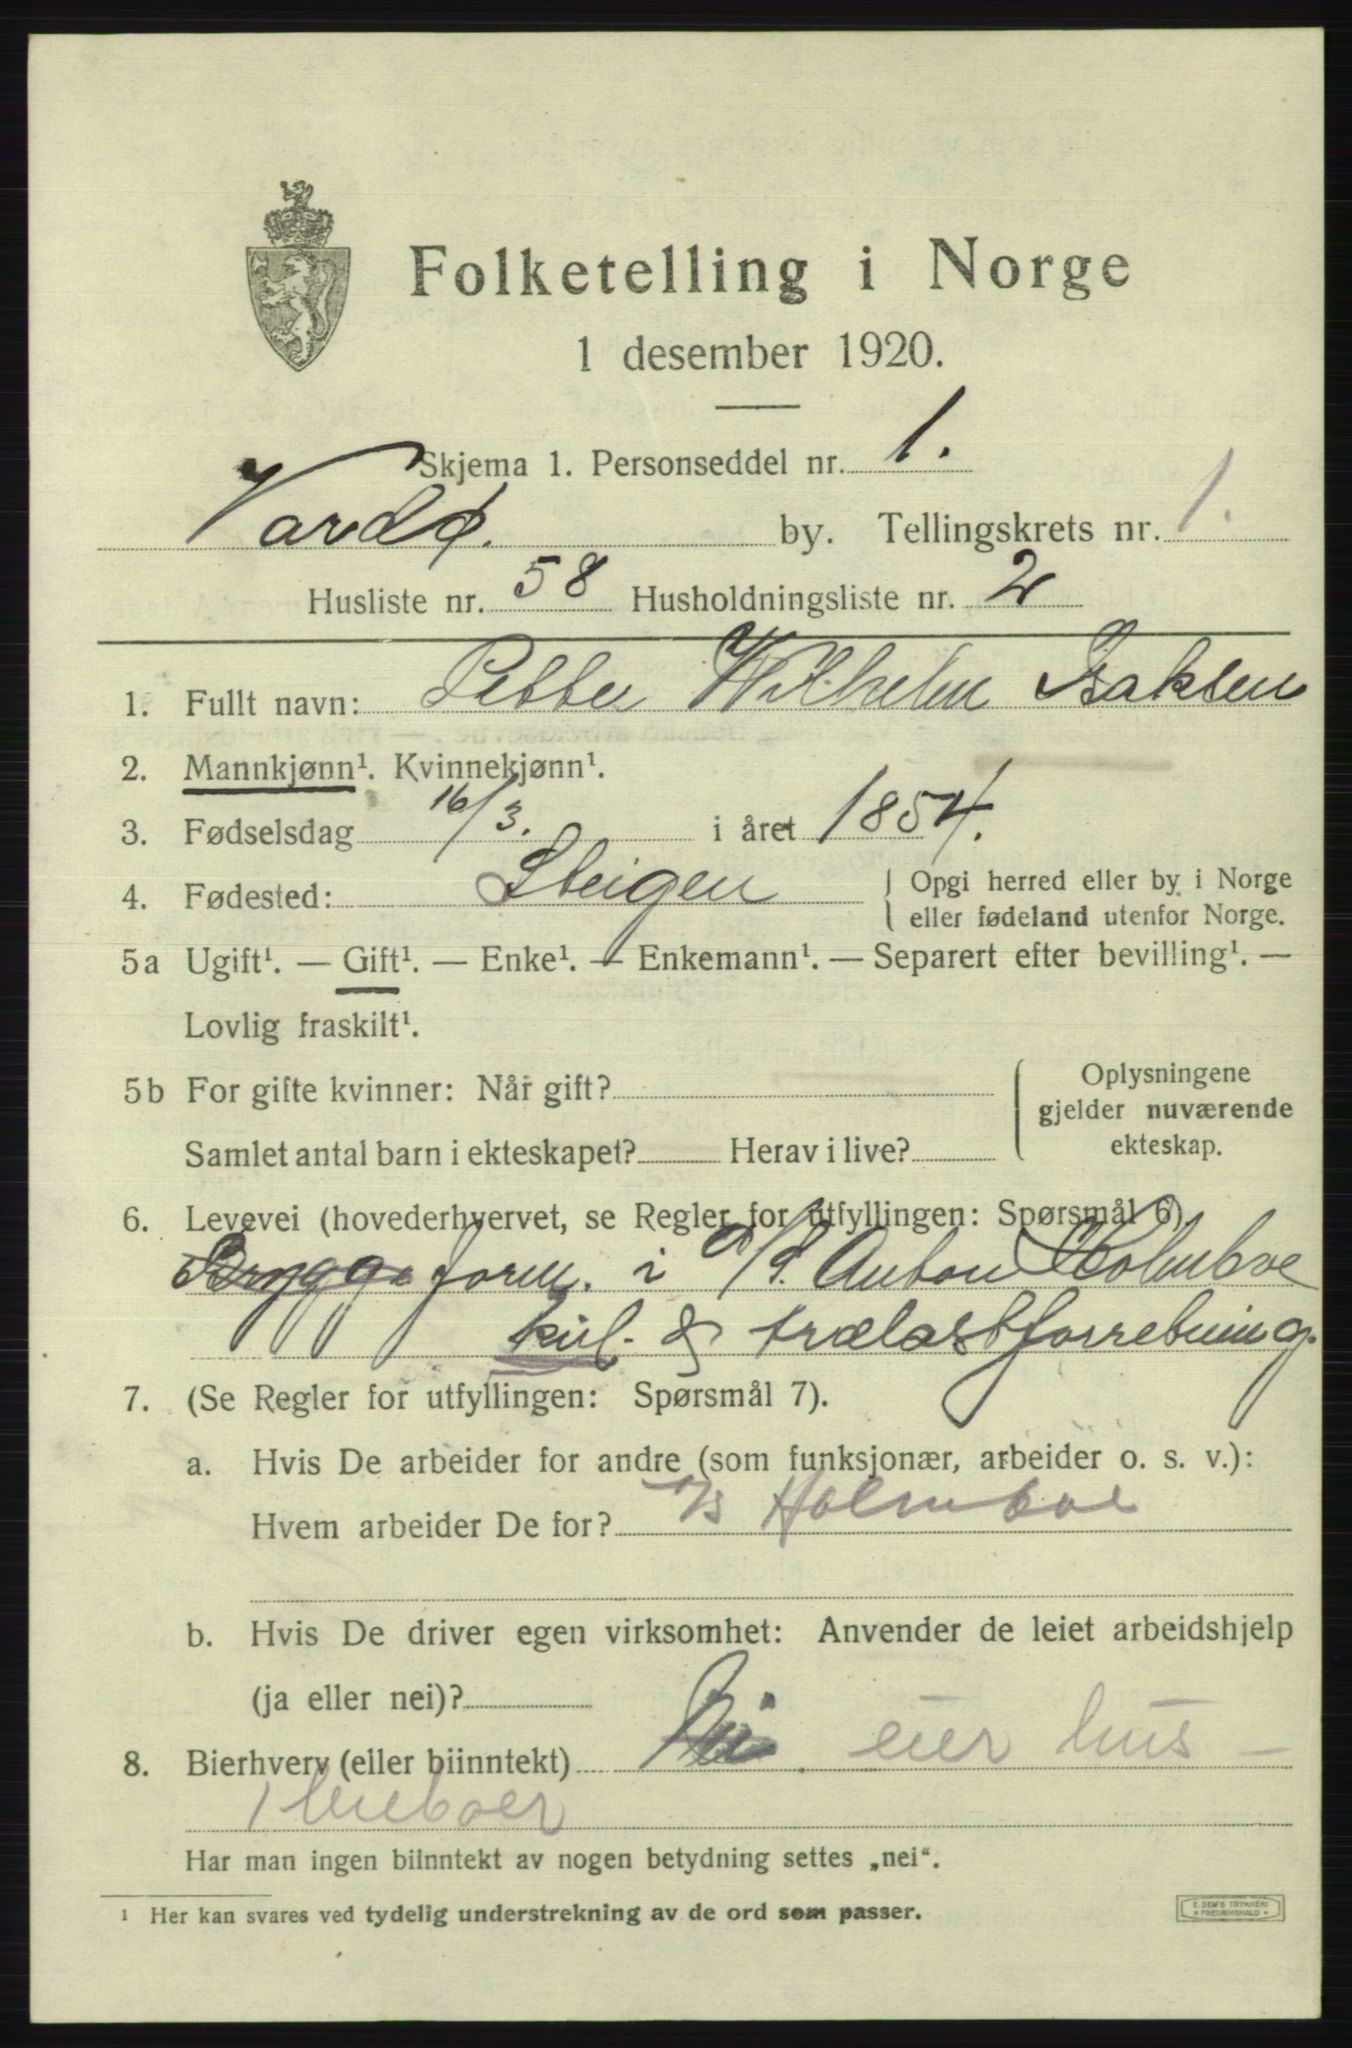 Folketelling i Norge
1 desember 1920.
Skjema 1. Personseddel nr. 1.
Vardø. by. Tellingskrets nr. 1.
Husliste nr. 58 Husholdningsliste nr. 2
1. Fullt navn: Petter Wilhelm Isaksen
2. Mannkjønn¹. Kvinnekjønn¹.
3. Fødselsdag 16/3. i året 1854.
4. Fødested: Steigen { Opgi herred eller by i Norge
eller fødeland utenfor Norge.
5a Ugift¹. — Gift¹. — Enke¹. — Enkemann¹. — Separert efter bevilling¹. —
Lovlig fraskilt¹.
5b For gifte kvinner: Når gift? { Oplysningene
gjelder nuværende
Samlet antal barn i ekteskapet? Herav i live? ekteskap.
6. Levevei (hovederhvervet, se Regler for utfyllingen: Spørsmål 6)
Brygge form. i A/S. Anton Holmboe
kul. & trælastforretning.
7. (Se Regler for utfyllingen: Spørsmål 7).
a. Hvis De arbeider for andre (som funksjonær, arbeider o. s. v.):
Hvem arbeider De for? A/S Holmboe
b. Hvis De driver egen virksomhet: Anvender de leiet arbeidshjelp
(ja eller nei)?
8. Bierhverv (eller biinntekt) eier hus –
1 leieboer
Har man ingen biinntekt av nogen betydning settes „nei“.
¹ Her kan svares ved tydelig understrekning av de ord som passer.
E. SEM'S TRYKKERI
FREDRIKSHALD